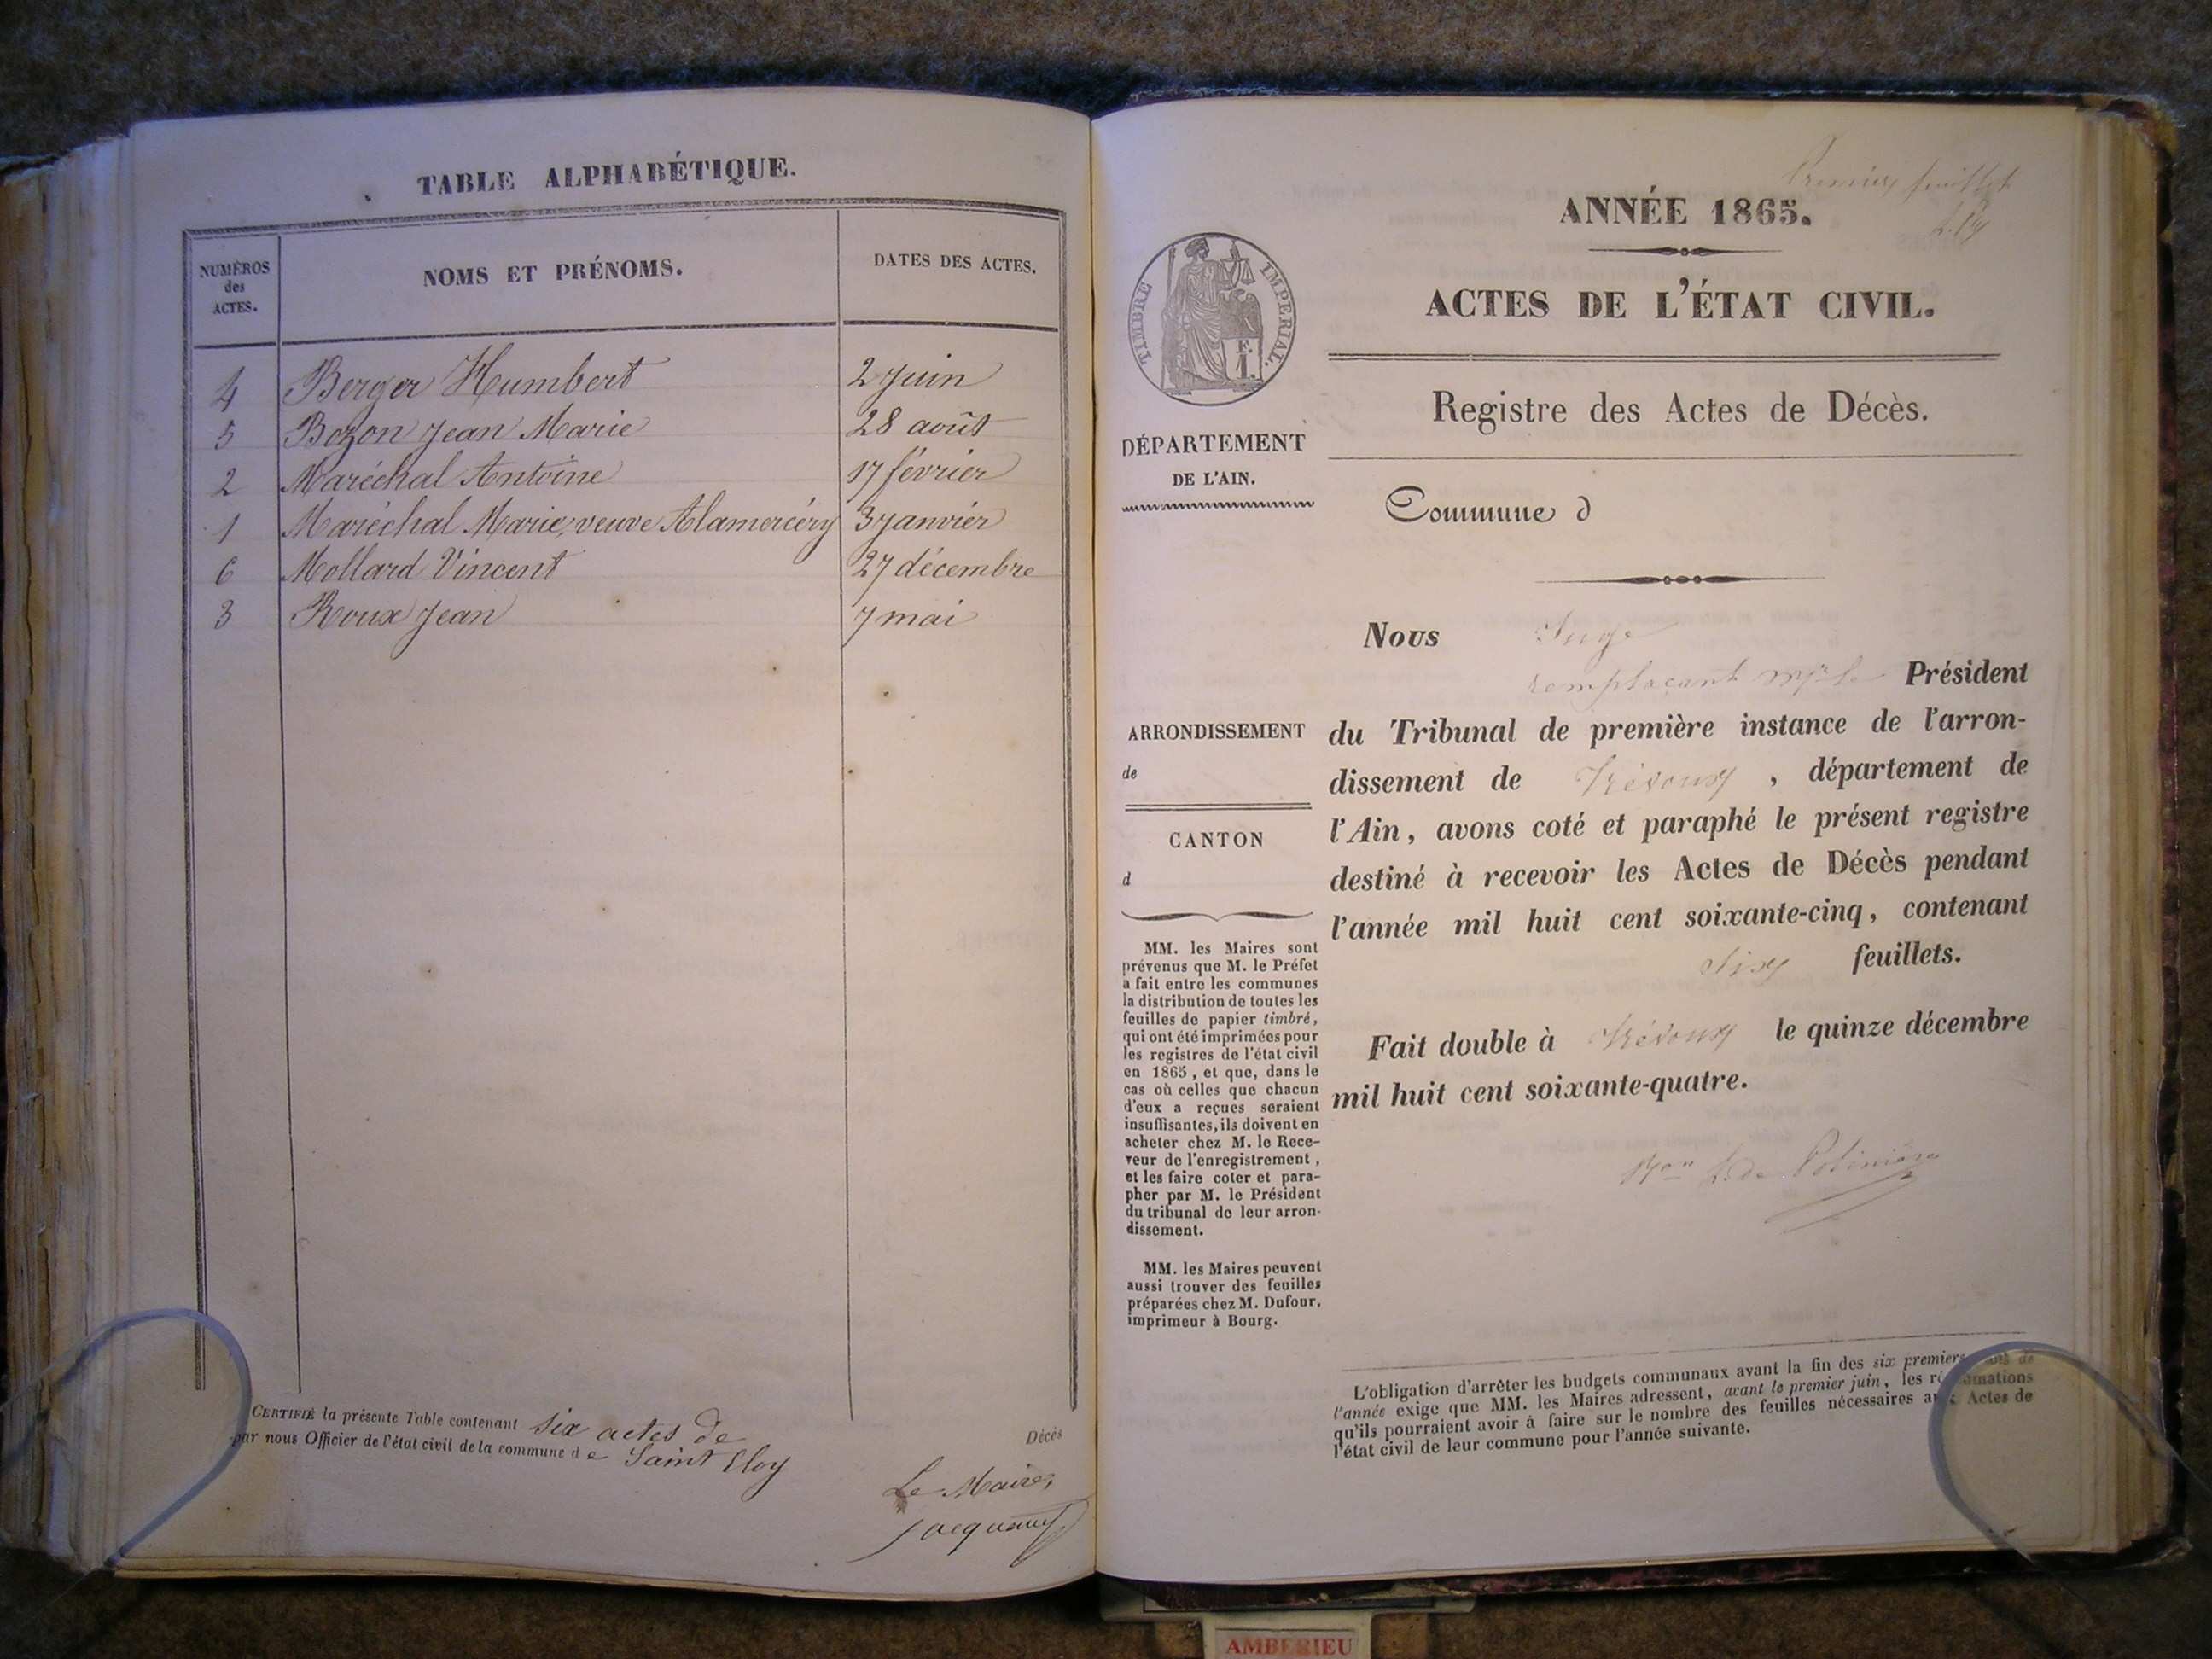 TABLE ALPHABÉTIQUE.
NUMÉROS
des
ACTES.
NOMS ET PRÉNOMS.
DATES DES ACTES.
4 Berger Humbert 2 Juin
5 Bozon Jean Marie 28 août
2 Maréchal Antoine 17 février
1 Maréchal Marie, veuve Alamercéry 3 Janvier
6 Mollard Vincent 27 décembre
3 Roux Jean 7 mai
CERTIFIÉ la présente Table contenant six actes de Décès
par nous Officier de l'état civil de la commune de Saint Eloy
Le Maire,
Premier feuillet
ANNÉE 1865.
TIMBRE IMPERIAL.
F.
1.
ACTES DE L'ÉTAT CIVIL.
Registre des Actes de Décès.
DÉPARTEMENT
DE L'AIN.
Commune d
ARRONDISSEMENT
de
CANTON
d
MM. les Maires sont
prévenus que M. le Préfet
a fait entre les communes
la distribution de toutes les
feuilles de papier timbré,
qui ont été imprimées pour
les registres de l'état civil
en 1865, et que, dans le
cas où celles que chacun
d'eux a reçues seraient
insuffisantes, ils doivent en
acheter chez M. le Rece-
veur de l'enregistrement,
et les faire coter et para-
pher par M. le Président
du tribunal de leur arron-
dissement.
MM. les Maires peuvent
aussi trouver des feuilles
préparées chez M. Dufour,
imprimeur à Bourg.
Nous Juge
remplaçant Mr le Président
du Tribunal de première instance de l'arron-
dissement de Trévoux, département de
l'Ain, avons coté et paraphé le présent registre
destiné à recevoir les Actes de Décès pendant
l'année mil huit cent soixante-cinq, contenant
Six feuillets.
Fait double à Trévoux le quinze décembre
mil huit cent soixante-quatre.
L'obligation d'arrêter les budgets communaux avant la fin des six premiers de
l'année exige que MM. les Maires adressent, avant le premier juin, les
qu'ils pourraient avoir à faire sur le nombre des feuilles nécessaires aux Actes de
l'état civil de leur commune pour l'année suivante.
AMBERIEU